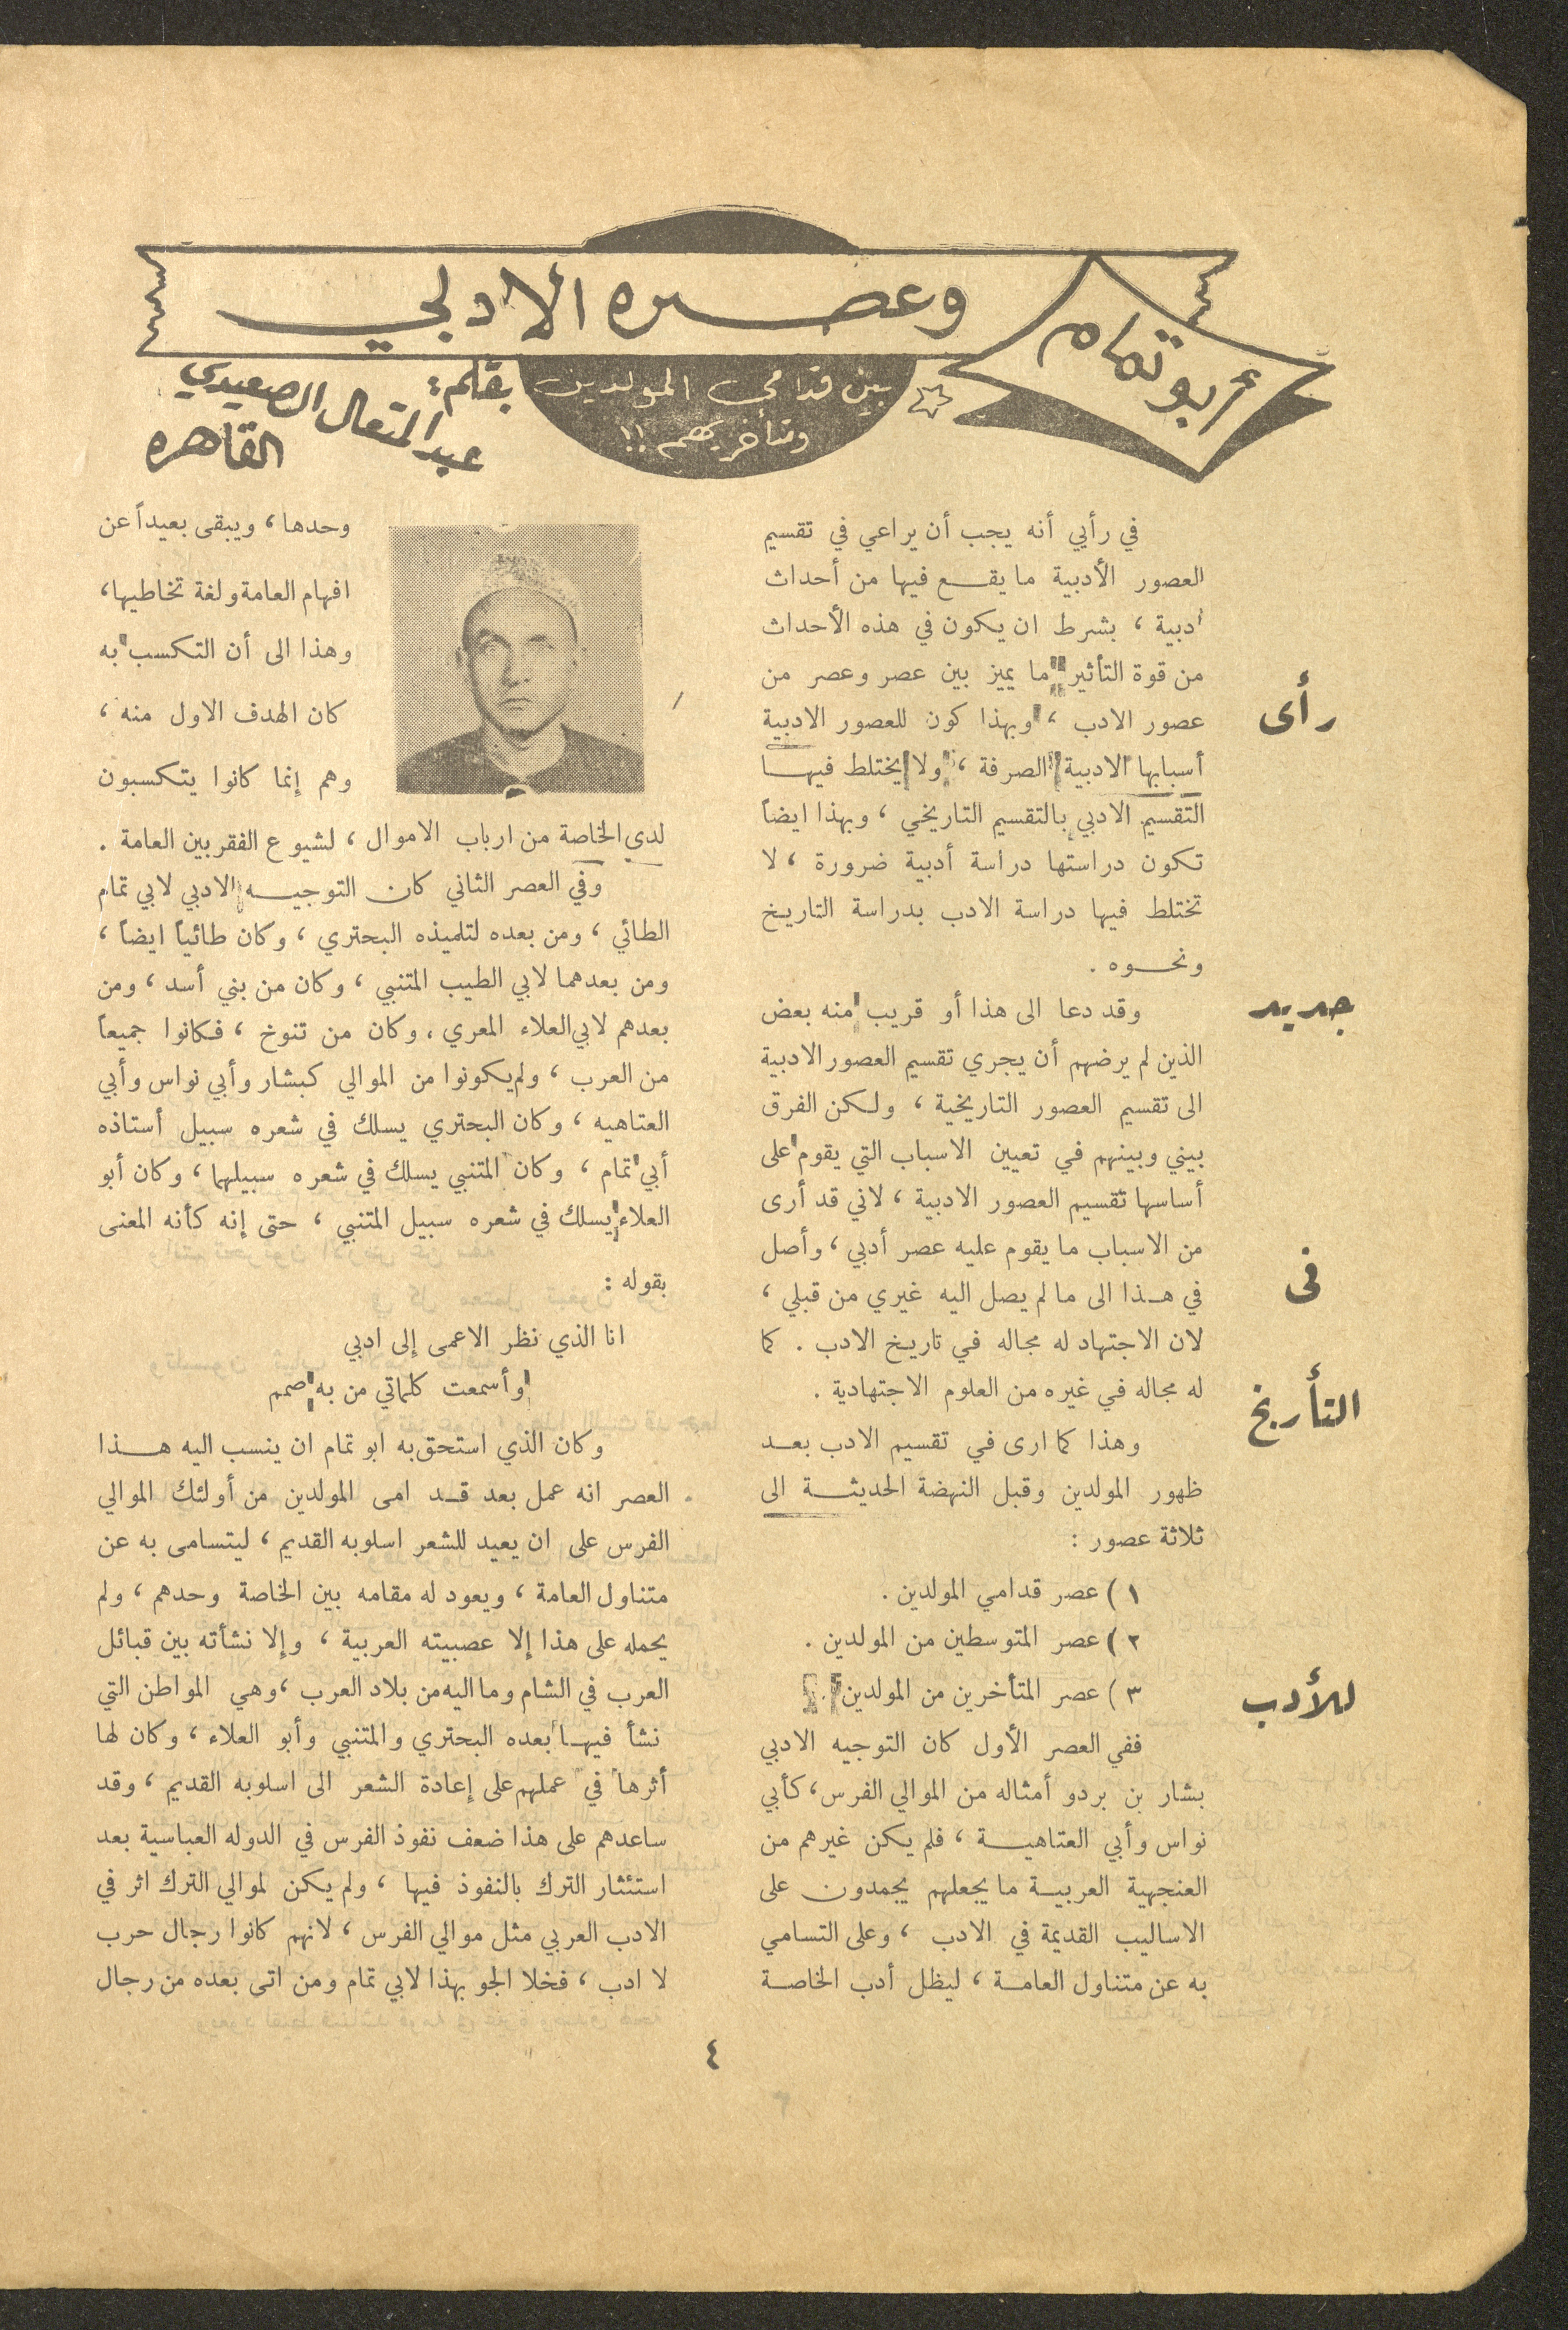 أبو تمام
وعصره الادبي
بين قدامى المولدين
ومتأخريهم !!
بقلم :
عبد المتعال الصعيدي
القاهره
رأى
جديد
فى
التأريخ
للأدب
في رأيي أنه يجب أن يراعي في تقسيم
العصور الأدبية ما يقع فيها من أحداث
أدبية ، بشرط ان يكون في هذه الأحداث
من قوة التأثير ما يميز بين عصر وعصر من
عصور الادب ، وبهذا كون للعصور الادبية
أسبابها الادبية الصرفة ، ولا يختلط فيها
التقسيم الادبي بالتقسيم التاريخي ، وبهذا ايضاً
تكون دراستها دراسة أدبية ضرورة ، لا
تختلط فيها دراسة الادب بدراسة التاريخ
ونحوه .
وقد دعا الى هذا أو قريب منه بعض
الذين لم يرضهم أن يجري تقسيم العصور الادبية
الى تقسيم العصور التاريخية ، ولكن الفرق
بيني وبينهم في تعيين الاسباب التي يقوم على
أساسها تقسيم العصور الادبية ، لاني قد أرى
من الاسباب ما يقوم عليه عصر أدبي ، وأصل
في هذا الى ما لم يصل اليه غيري من قبلي ،
لان الاجتهاد له مجاله في تاريخ الادب . كما
له مجاله في غيره من العلوم الاجتهادية .
وهذا كما ارى في تقسيم الادب بعد
ظهور المولدين وقبل النهضة الحديثة الى
ثلاثة عصور :
١ ) عصر قدامي المولدين .
٢ ) عصر المتوسطين من المولدين .
٣ ) عصر المتأخرين من المولدين .
ففي العصر الأول كان التوجيه الادبي
بشار بن بردو أمثاله من الموالي الفرس ، كأبي
نواس وأبي العتاهية ، فلم يكن غيرهم من
العنجهية العربية ما يجعلهم يجمدون على
الاساليب القديمة في الادب ، وعلى التسامي
به عن متناول العامة ، ليظل أدب الخاصة
وحدها ، ويبقى بعيداً عن
افهام العامة ولغة تخاطبها ،
وهذا الى أن التكسب به
كان الهدف الاول منه ،
وهم إنما كانوا يتكسبون
لدي الخاصة من ارباب الاموال ، لشيوع الفقر بين العامة .
وفي العصر الثاني كان التوجيه الادبي لابي تمام
الطائي ، ومن بعده لتلميذه البحتري ، وكان طائياً ايضاً ،
ومن بعدهما لابي الطيب المتنبي ، وكان من بني أسد ، ومن
بعدهم لابي العلاء المعري ، وكان من تنوخ ، فكانوا جميعاً
من العرب ، ولم يكونوا من الموالي كبشار وأبي نواس وأبي
العتاهيه ، وكان البحتري يسلك في شعره سبيل أستاذه
أبي تمام ، وكان المتنبي يسلك في شعره سبيلهما ، وكان أبو
العلاء يسلك في شعره سبيل المتنبي ، حتى إنه كأنه المعنى
بقوله :
انا الذي نظر الاعمى إلى ادبي
وأسمعت كلماتي من به صمم
وكان الذي استحق به ابو تمام ان ينسب اليه هذا
العصر انه عمل بعد قد امى المولدين من أولئك الموالي
الفرس على ان يعيد للشعر اسلوبه القديم ، ليتسامى به عن
متناول العامة ، ويعود له مقامه بين الخاصة وحدهم ، ولم
يحمله على هذا إلا عصبيته العربية ، وإلا نشأته بين قبائل
العرب في الشام وما اليه من بلاد العرب ، وهي المواطن التي
نشأ فيها بعده البحتري والمتنبي وأبو العلاء ، وكان لها
أثرها في عملهم على إعادة الشعر الى اسلوبه القديم ، وقد
ساعدهم على هذا ضعف نفوذ الفرس في الدوله العباسية بعد
استئثار الترك بالنفوذ فيها ، ولم يكن لموالي الترك اثر في
الادب العربي مثل موالي الفرس ، لانهم كانوا رجال حرب
لا ادب ، فخلا الجو بهذا لابي تمام ومن اتى بعده من رجال
٤